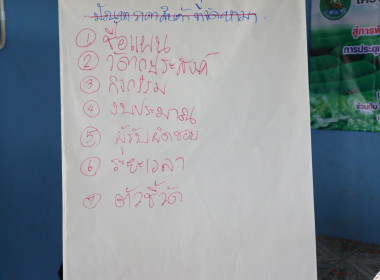 ข้อมูลทางการสินค้า
① ชื่อแผน
② วัตถุประสงค์
③ กิจกรรม
④ งบประมาณ
⑤ ผู้รับผิดชอบ
⑥ ระยะเวลา
⑦ ตัวชี้วัด
สู่การ
การประชุ
ร่วมกับ